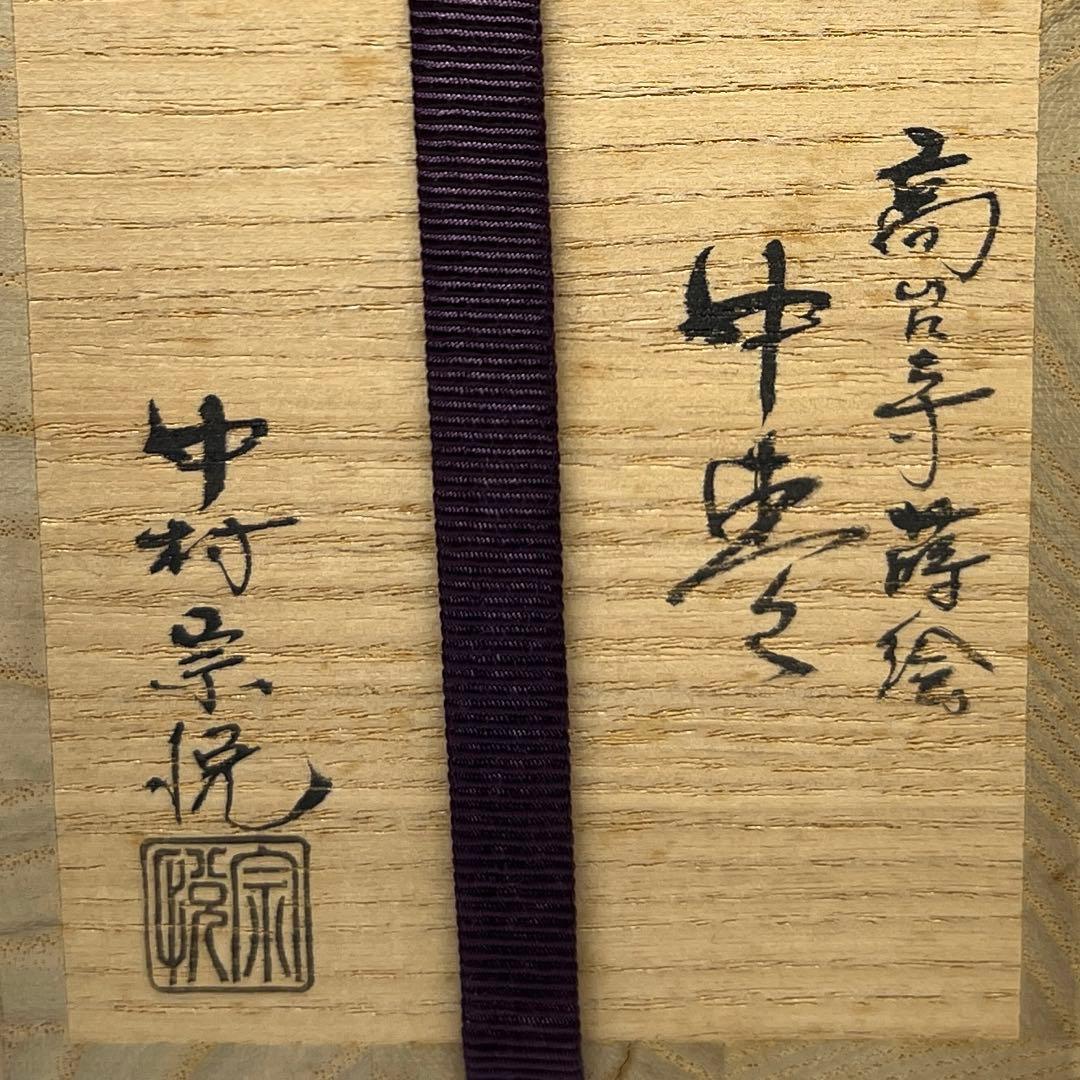 高台寺蒔絵
中棗
中村宗悦
宗悦